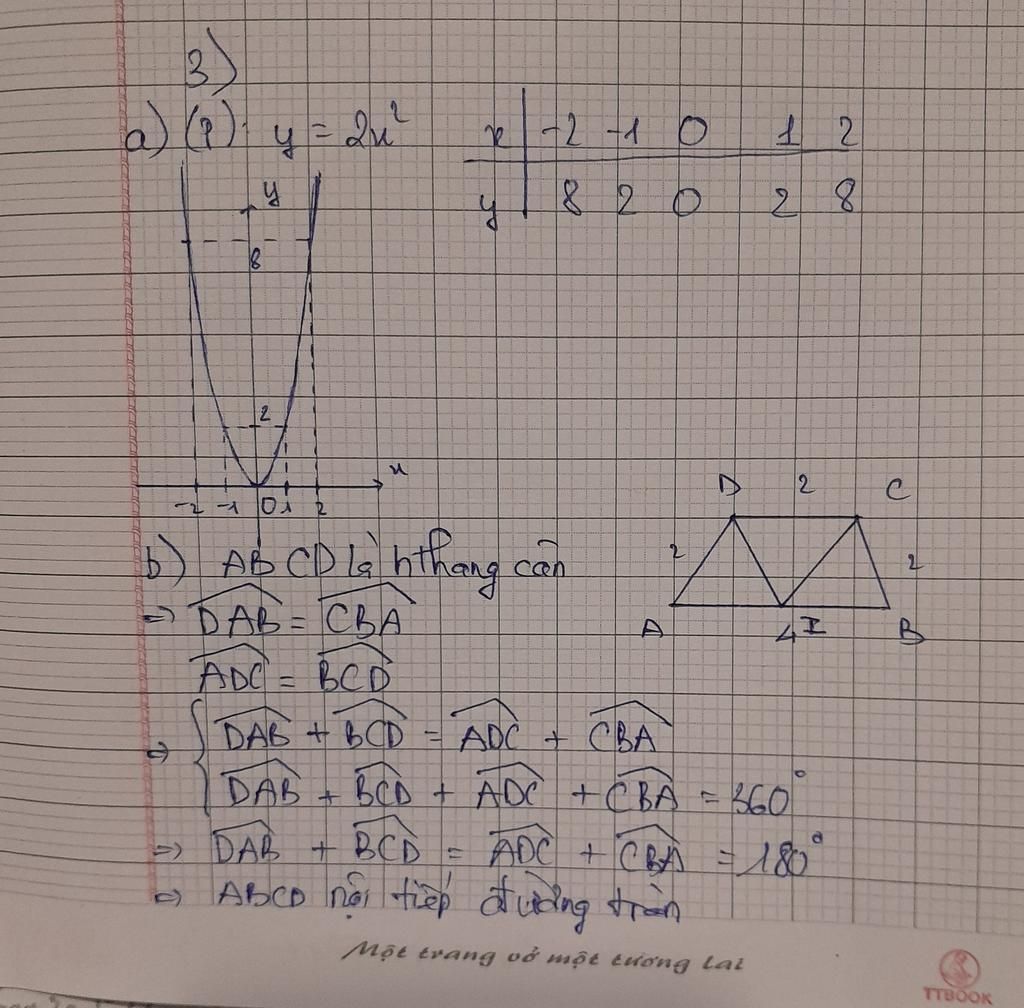 3)
a) (P): y = 2x²
x | -2 -1 0 1 2
y | 8 2 0 2 8
y
8
2
x
-2 -1 0 1 2
D 2 C
2 2
A 4 I B
b) ABCD là hthang cân
=> DAB = CBA
ADC = BCD
=> { DAB + BCD = ADC + CBA
DAB + BCD + ADC + CBA = 360°
=> DAB + BCD = ADC + CBA = 180°
=> ABCD nội tiếp đường tròn
Một trang vở một tương lai
TTBOOK